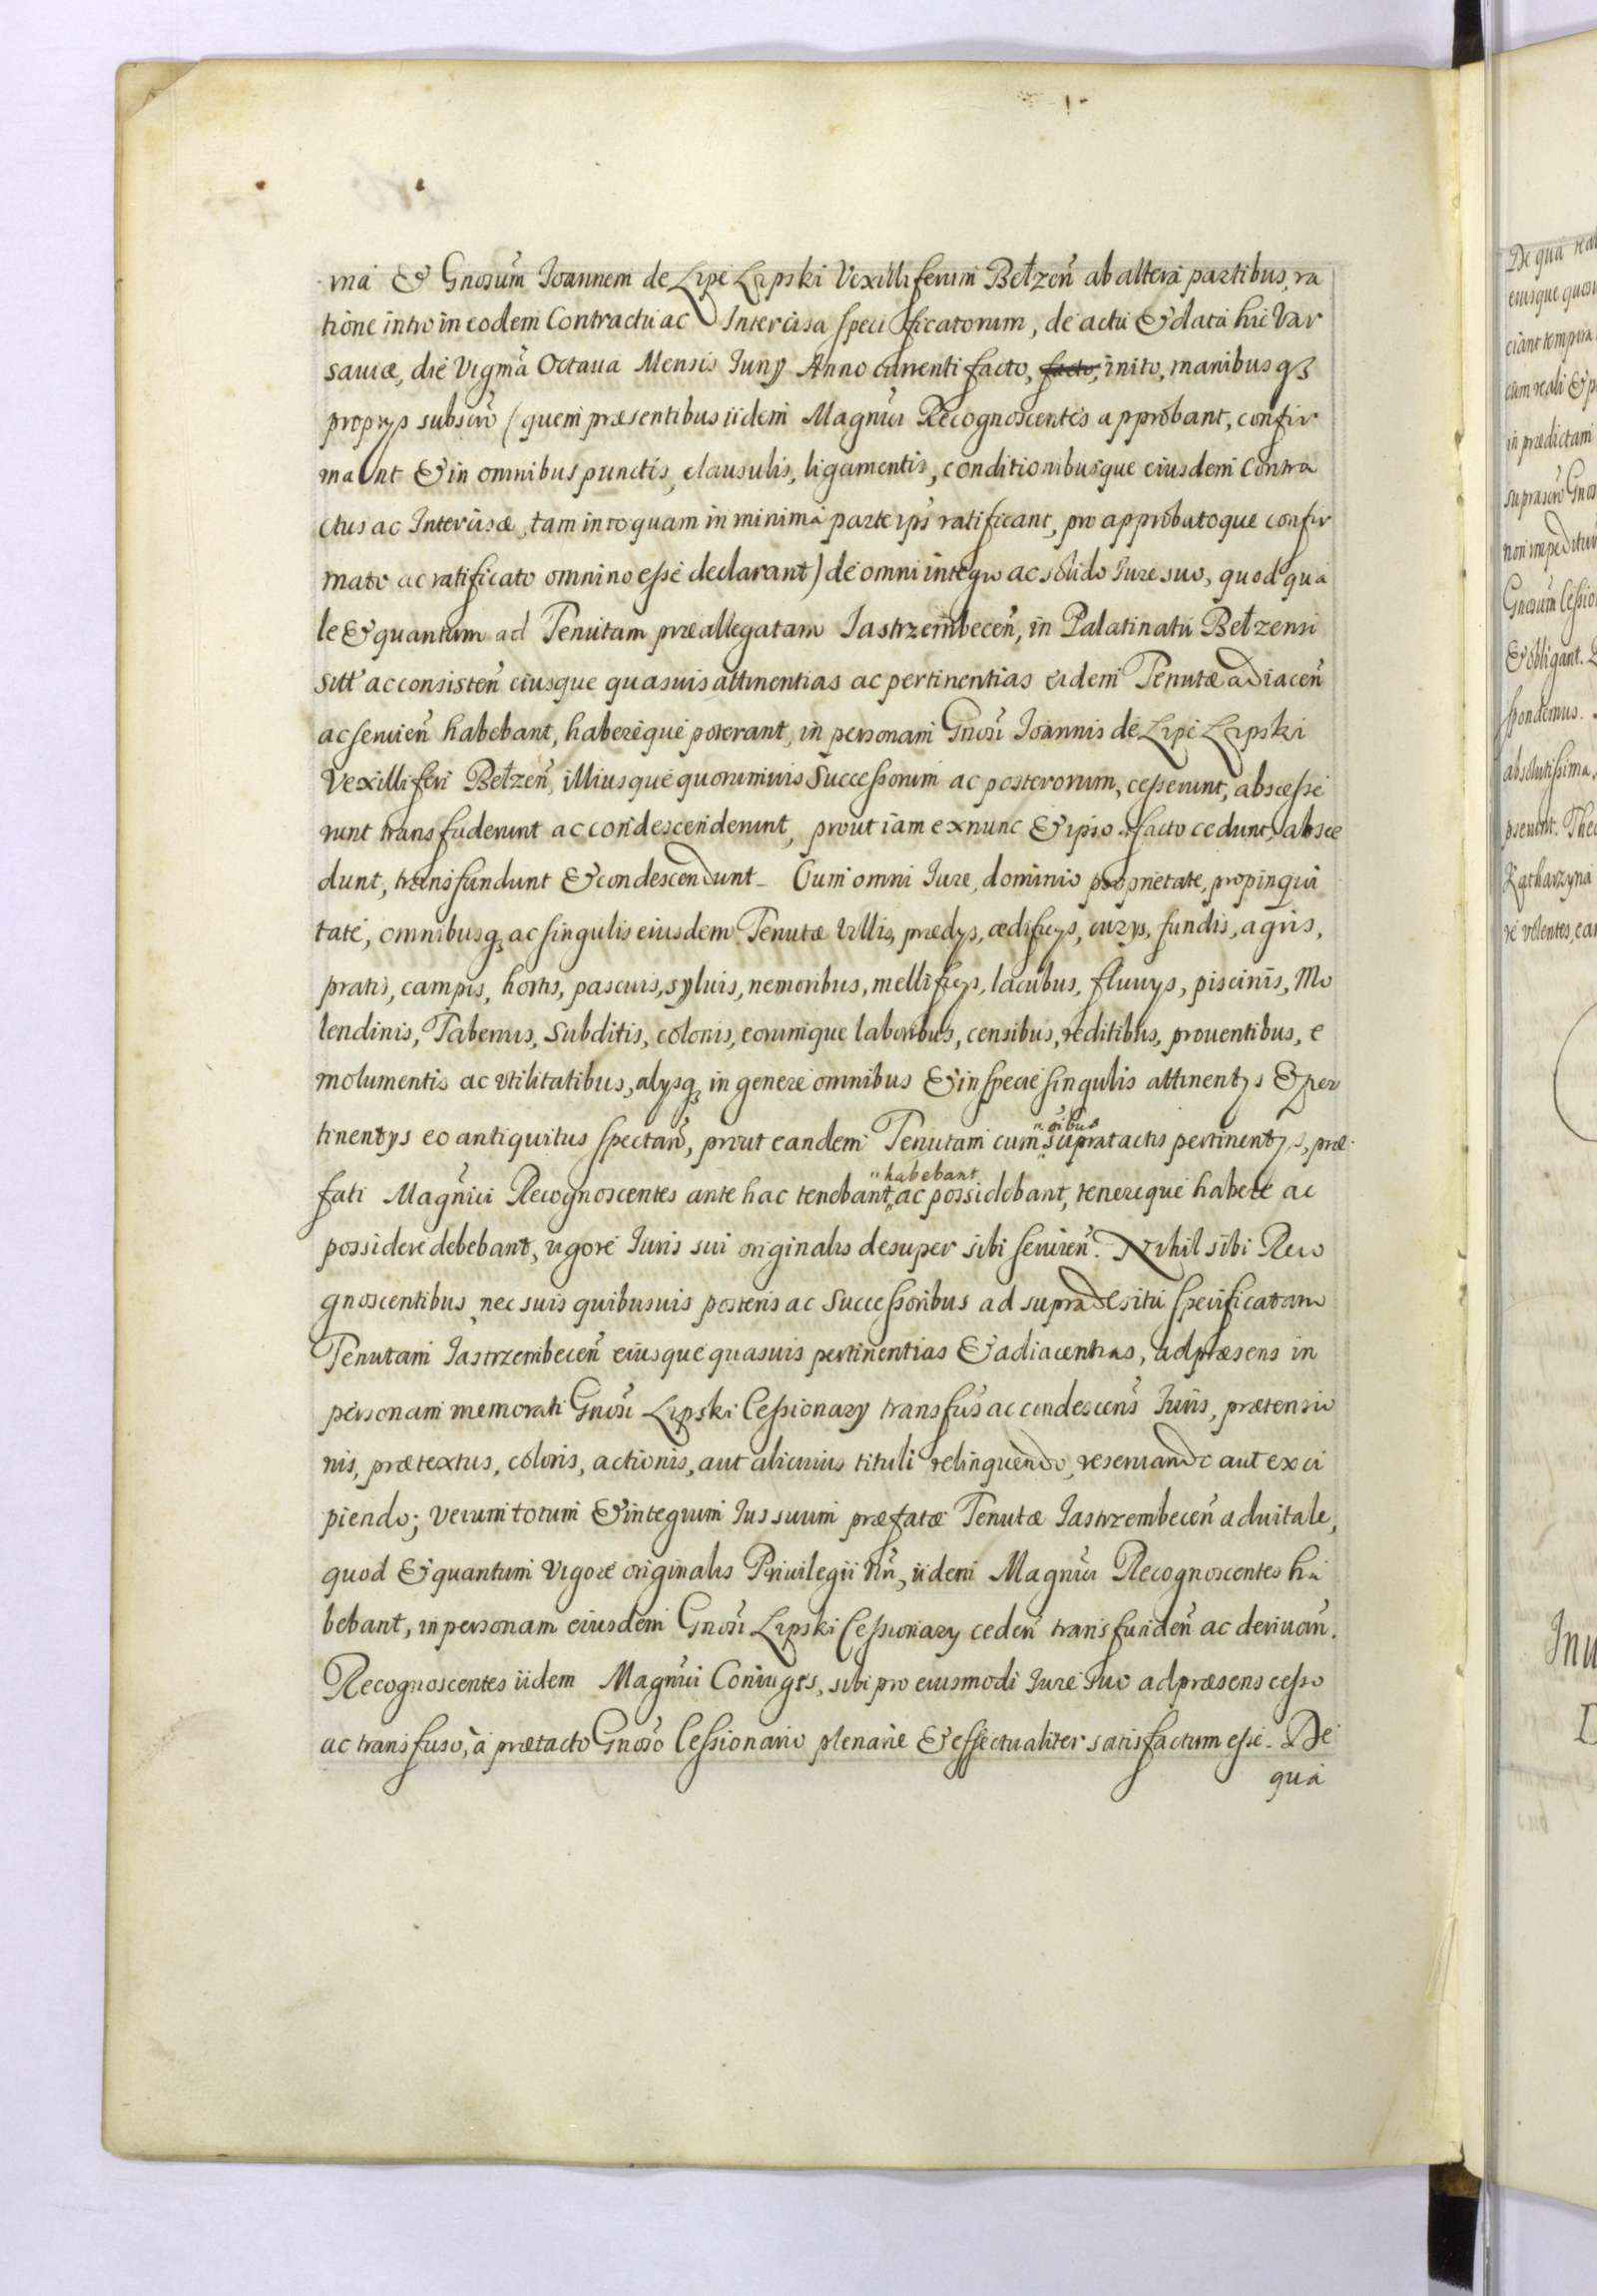 ma & Gnosũm Ioannem de Lipe Lipski Vexilliferum Bełzeñ ab altera partibus, ra
tione intro in eodem Contractu ac Intercisa specificatorum, de actu & data hic Var
sauiæ, die Vigmã Octaua Mensis Iuny Anno currenti facto, facto, inito, manibusqȝ
proprys subscrõ (quem præsentibus iidem Magnũi Recognoscentes approbant, confir
mant & in omnibus punctis, clausulis, ligamentis, conditionibusque eiusdem Contra
ctus ac Intercisæ, tam in toto quam in minima parte ips̃ ratificant, pro approbatoque confir
mato ac ratificato omnino esse declarant) de omni integro ac solido Iure suo, quod qua
le & quantum ad Tenutam præallegatam Iastrzembeceñ, in Palatinatu Bełzensi
sitt̃ ac consisteñ eiusque quasuis attinentias ac pertinentias eidem Tenutæ adiaceñ
ac seruieñ habebant, habereque poterant, in personam Gnosĩ Ioannis de Lipe Lipski
Vexilliferi Bełzeñ, illiusque quorumuis Successorum ac posterorum, cesserunt, abscesse
runt transfuderunt ac condescenderunt, prout iam exnunc & ipso facto cedunt, absce
dunt, transfundunt & condescendunt. Cum omni Iure, dominio proprietate, propinqui
tate, omnibusq, ac singulis eiusdem Tenutæ Villis, prædys, ædificys, curys, fundis, agris,
pratis, campis, hortis, pascuis, syluis, nemoribus, mellificys, lacubus, fluuys, piscinis, Mo
lendinis, Tabernis, Subditis, colonis, eorumque laboribus, censibus, reditibus, prouentibus, e
molumentis ac vtilitatibus, alysq, in genere omnibus & in specie singulis attinentys & per
tinentys eo antiquitus spectañ, prout eandem Tenutam cum "õibus" supratactis pertinentys, præ
fati Magnũici Recognoscentes ante hac tenebant, "habebant" ac possidebant, tenereque habere ac
possidere debebant, vigore Iuris sui originalis desuper sibi seruieñ. Nihil sibi Reco
gnoscentibus, nec suis quibusuis posteris ac Successoribus ad supra de situ specificatam
Tenutam Iastrzembeceñ eiusque quasuis pertinentias & adiacentias, ad præsens in
personam memorati Gnosĩ Lipski Cessionary transfus̃ ac condescens̃ Iuris, prætensio
nis, prætextus, coloris, actionis, aut alicuius tituli relinquendo, reseruando aut exci
piendo; verum totum & integrum Ius suum præfatæ Tenutæ Iastrzembeceñ aduitale,
quod & quantum vigore originalis Priuilegii sũi, iidem Magnũi Recognoscentes ha
bebant, in personam eiusdem Gnosĩ Lipski Cessionary cedeñ transfundeñ ac deriuañ.
Recognoscentes iidem Magnũi Coniuges, sibi pro eiusmodi Iure suo ad præsens cesso
ac transfuso, à prætacto Gnosõ Cessionario plenarie & effectualiter satisfactum esse. De
qua
De qua real
eiusque quosu
ciant tempora
cum reali & p
in prædictam
suprascrõ Gnos
non impeditur
Gnosum Cessio
& obligant.
spondemus.
absolutissima
Katharzyna
re volentes, ea